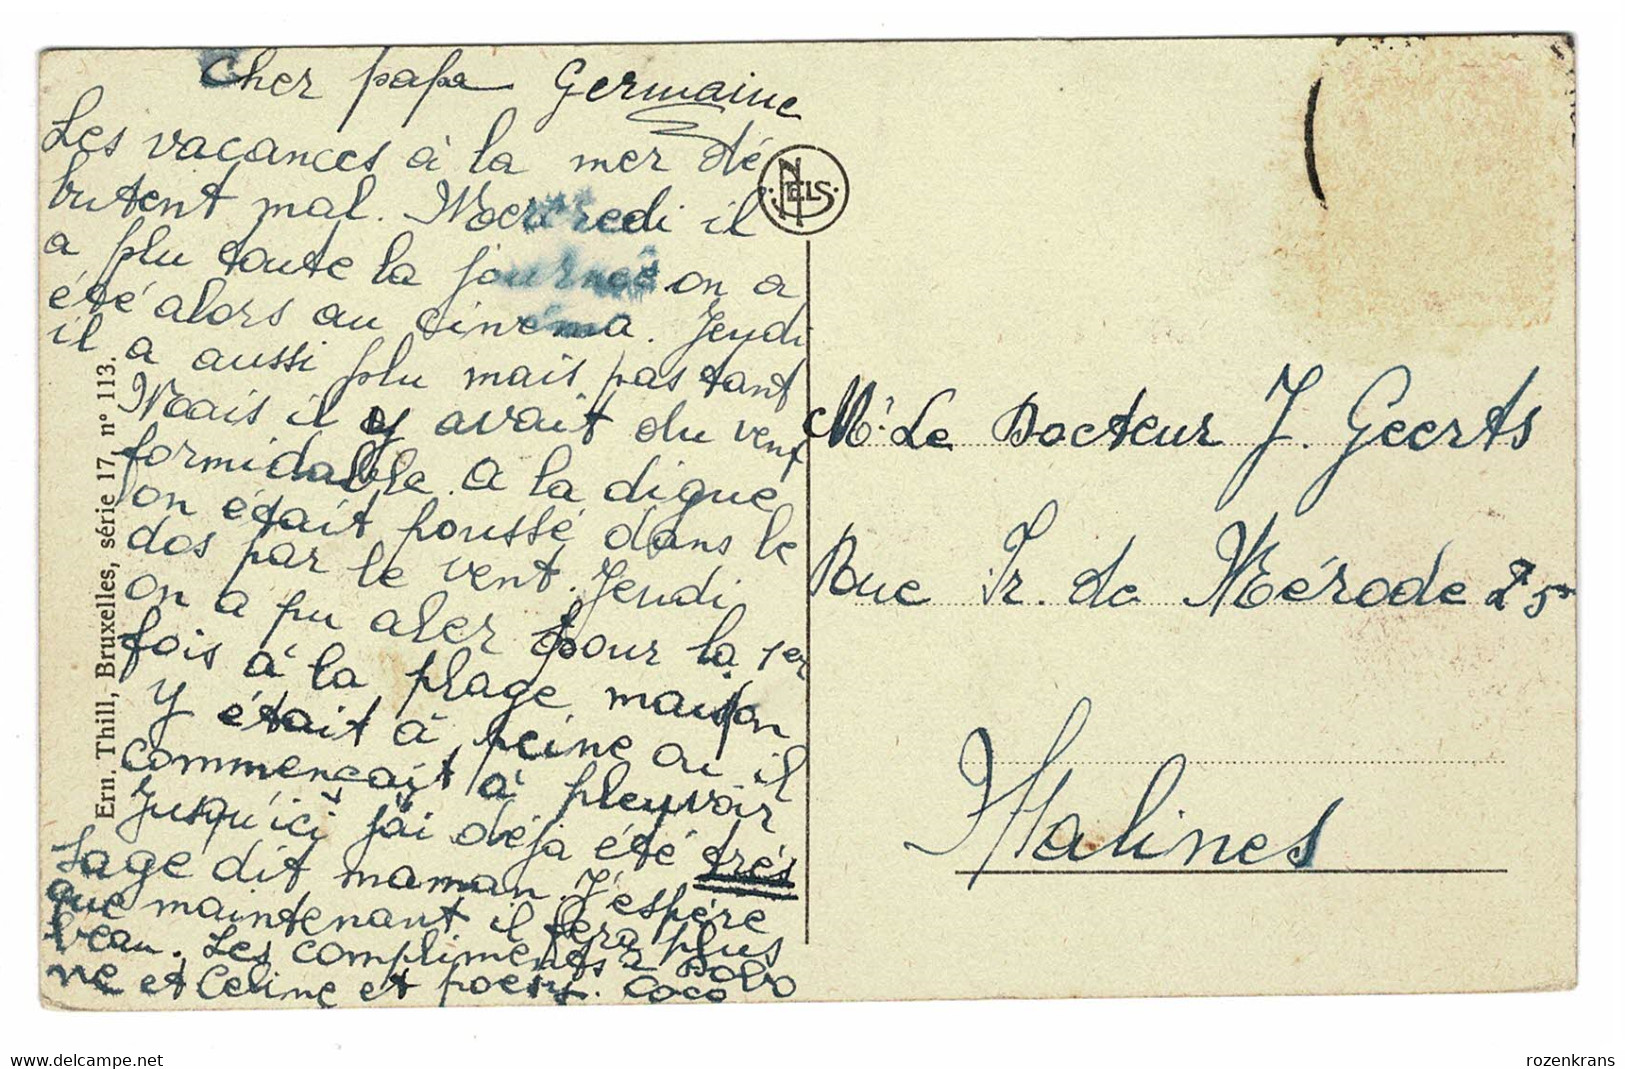 Cher papa Germaine
Les vacances à la mer dé
butent mal. Mercredi il
a plu toute la journée on a
été alors au cinéma. Jeudi
il a aussi plu mais pas tant
Mais il y avait du vent
formidable. A la digue
on était poussé dans le
dos par le vent. Jeudi
on a pu aler pour la 1er
fois à la plage mais on
y était à peine ou il
commençait à pleuvoir
Jusqu'ici j'ai déja été très
sage dit maman. J'espère
que maintenant il fera plus
beau. Les compliments à
ne et Celine et poess. Coco
NELS
Ern. Thill, Bruxelles, série 17, n° 113.
Mr Le Docteur J. Geerts
Rue Fr. de Mérode 25
Malines
rozenkrans
www.delcampe.net